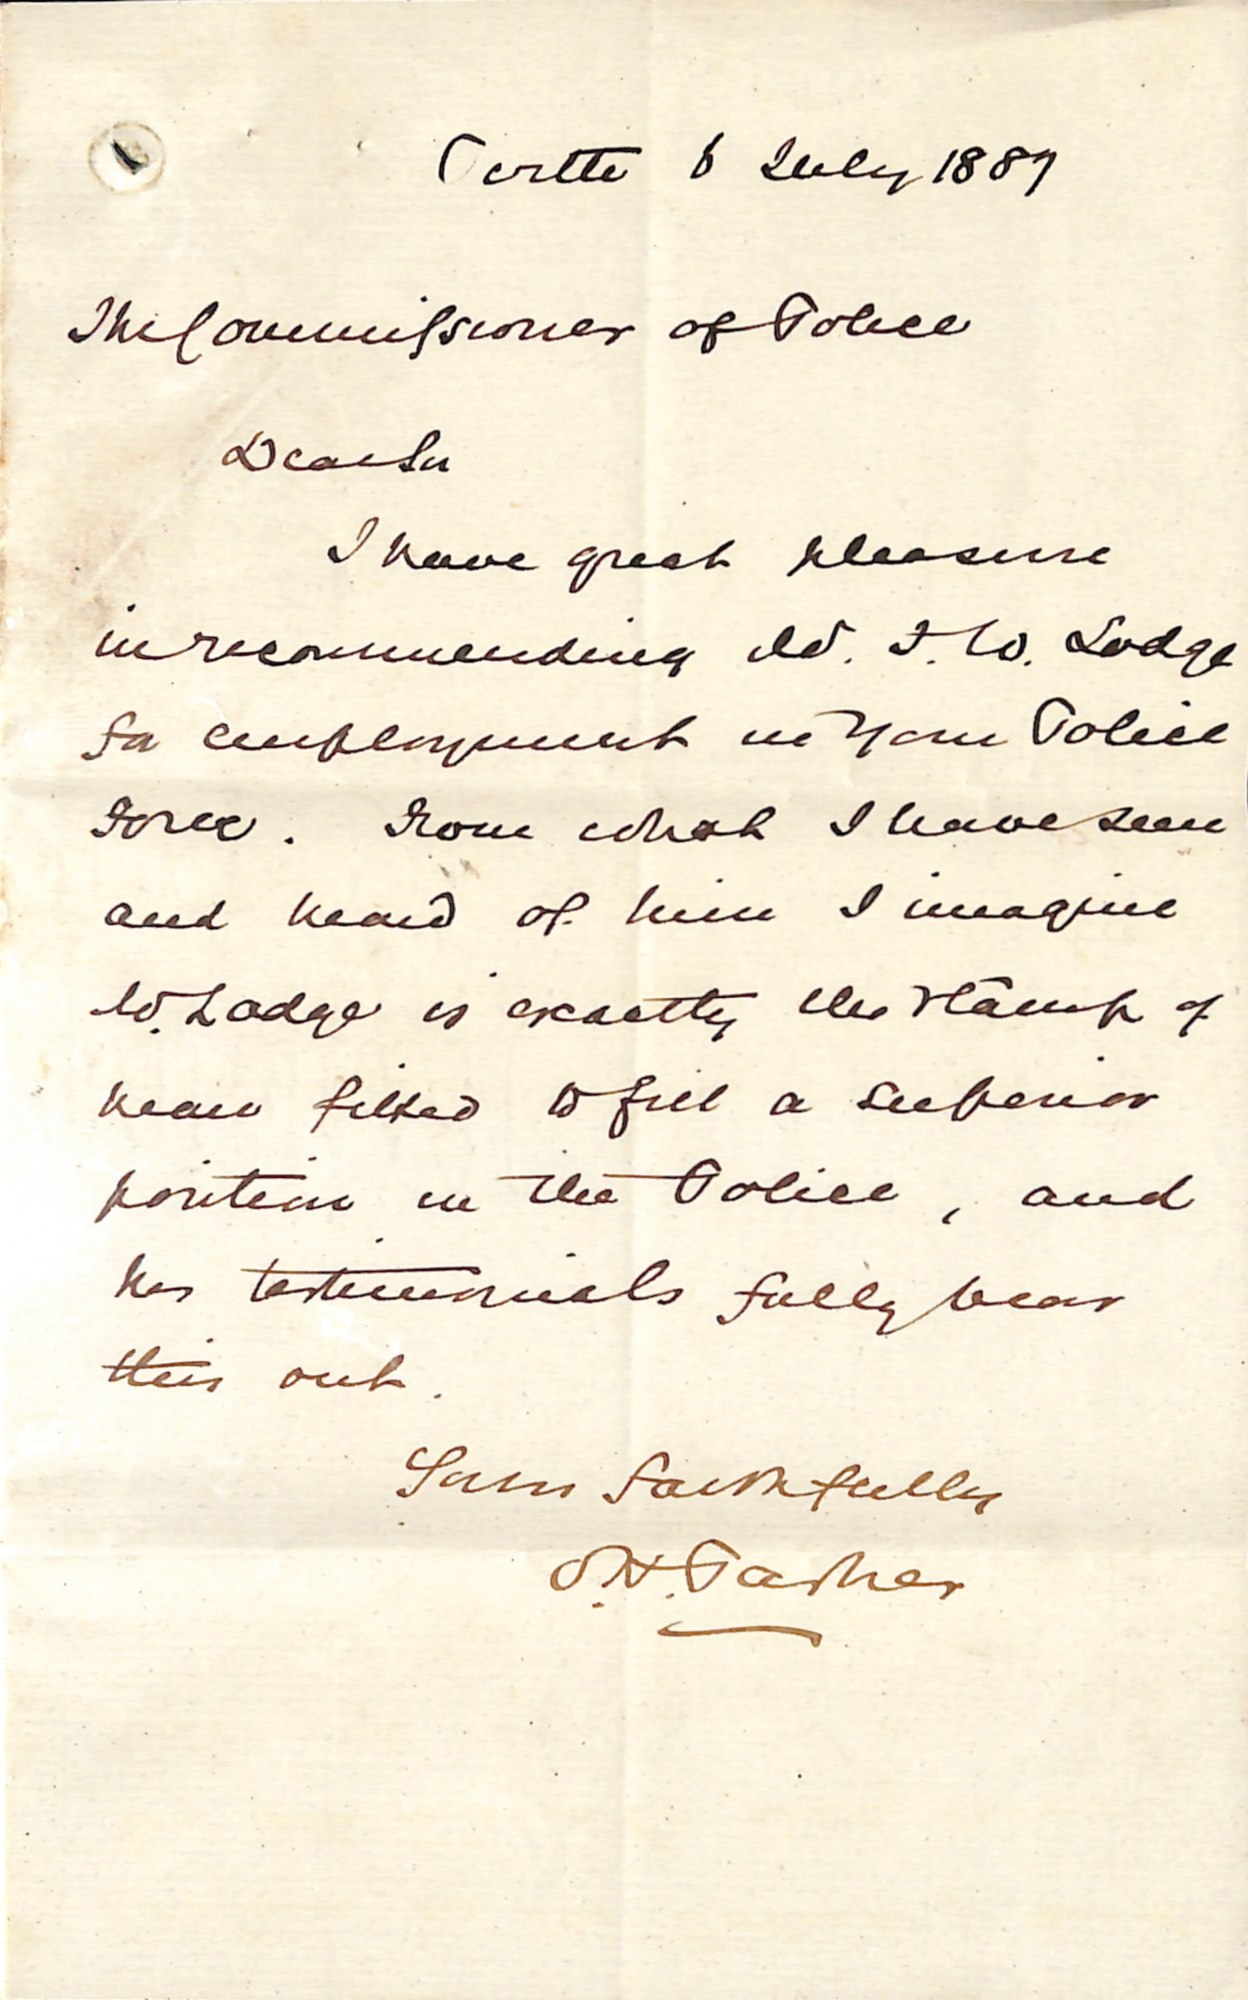 Perth 6 July 1887
The Commissioner of Police
Dear Sir
I have great pleasure
in recommending Mr. F. W. Lodge
for employment in your Police
Force. From what I have seen
and heard of him I imagine
Mr. Lodge is exactly the stamp of
man fitted to fill a superior
position in the Police, and
his testimonials fully bear
this out.
Yours faithfully
S. H. Parker